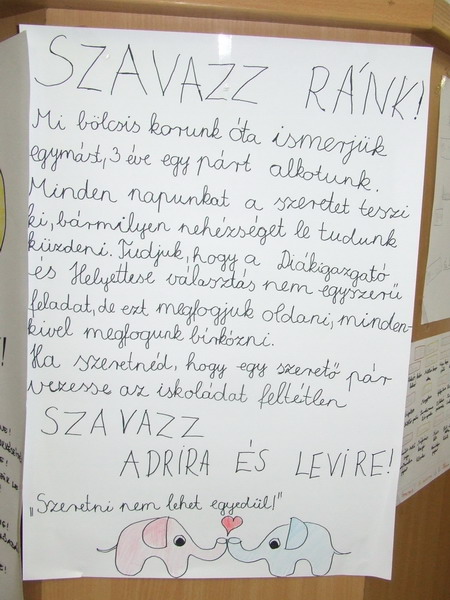 SZAVAZZ RÁNK!
Mi bölcsis korunk óta ismerjük
egymást, 3 éve egy párt alkotunk.
Minden napunkat a szeretet teszi
ki, bármilyen nehézséget le tudunk
küzdeni. Tudjuk, hogy a Diákigazgató
és Helyettese választás nem egyszerű
feladat, de ezt megfogjuk oldani, minden-
kivel megfogunk bírkózni.
Ha szeretnéd, hogy egy szerető pár
vezesse az iskoládat feltétlen
SZAVAZZ
ADRIRA ÉS LEVIRE!
„Szeretni nem lehet egyedül!"